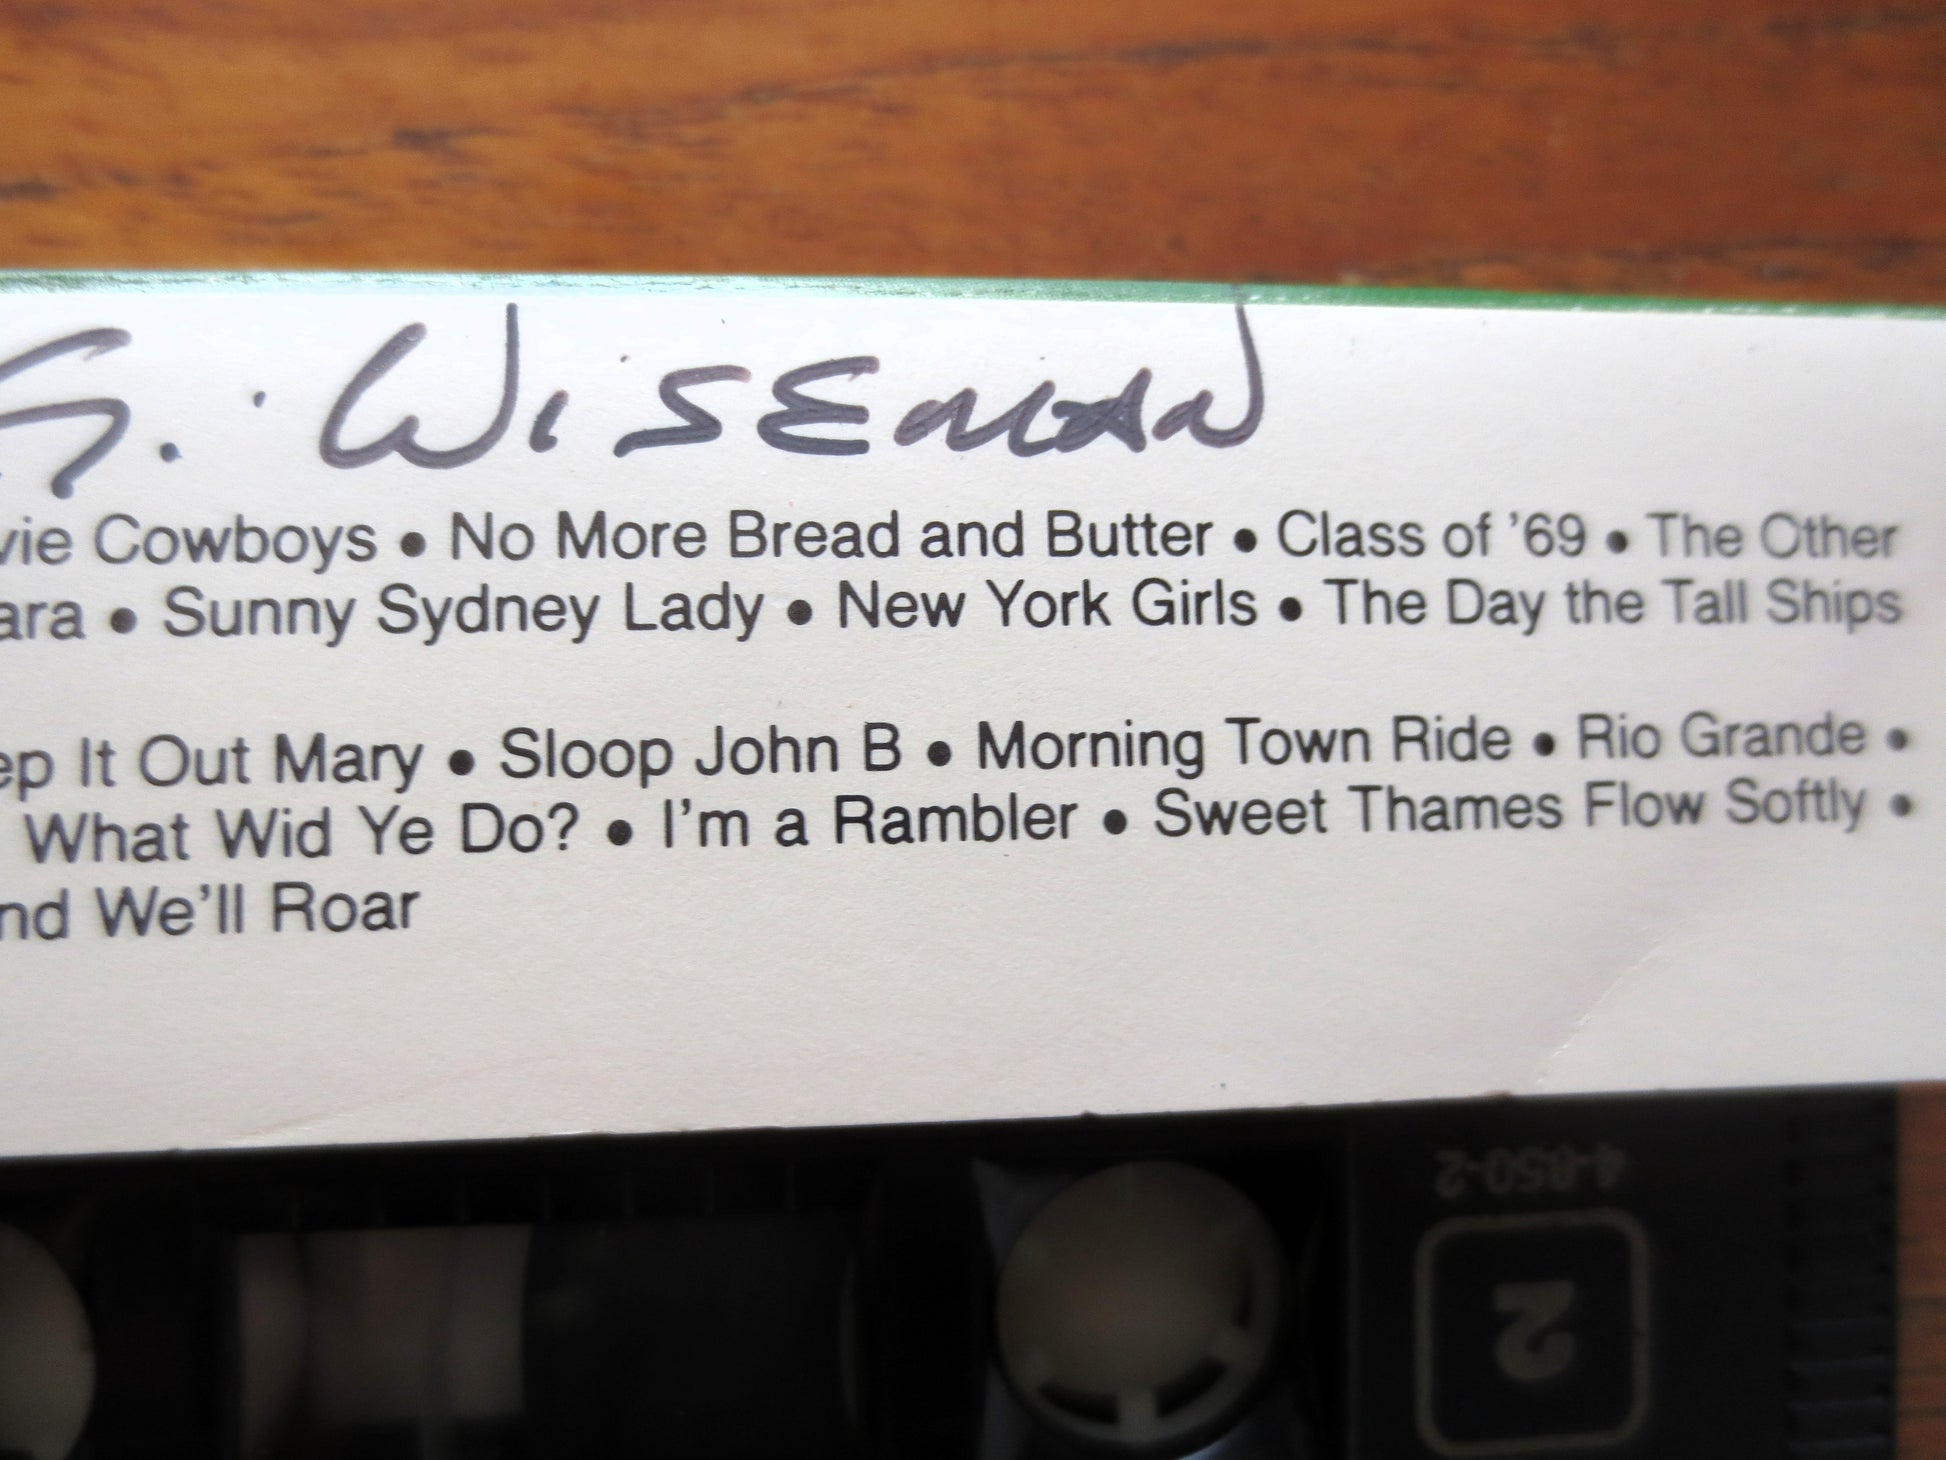 G. WISEMAN
vie Cowboys • No More Bread and Butter • Class of ’69 • The Other
ara • Sunny Sydney Lady • New York Girls • The Day the Tall Ships
ep It Out Mary • Sloop John B • Morning Town Ride • Rio Grande •
What Wid Ye Do? • I’m a Rambler • Sweet Thames Flow Softly •
nd We’ll Roar
4-050-2
2